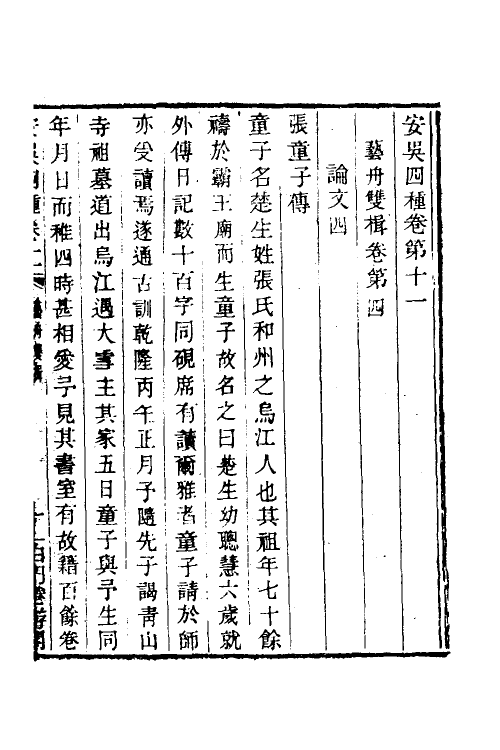 安吳四種卷第十一
藝舟雙楫卷第四
論文四
張童子傳
童子名楚生姓張氏和州之烏江人也其祖年七十餘
禱於霸王廟而生童子故名之曰楚生幼聰慧六歲就
外傅日記數十百字同硯席有讀爾雅者童子請於師
亦受讀焉遂通古訓乾隆丙午正月予隨先子謁青山
寺祖墓道出烏江遇大雪主其家五日童子與予生同
年月日而稚四時甚相愛予見其書室有故籍百餘卷
安吳四種卷十一 藝舟雙楫